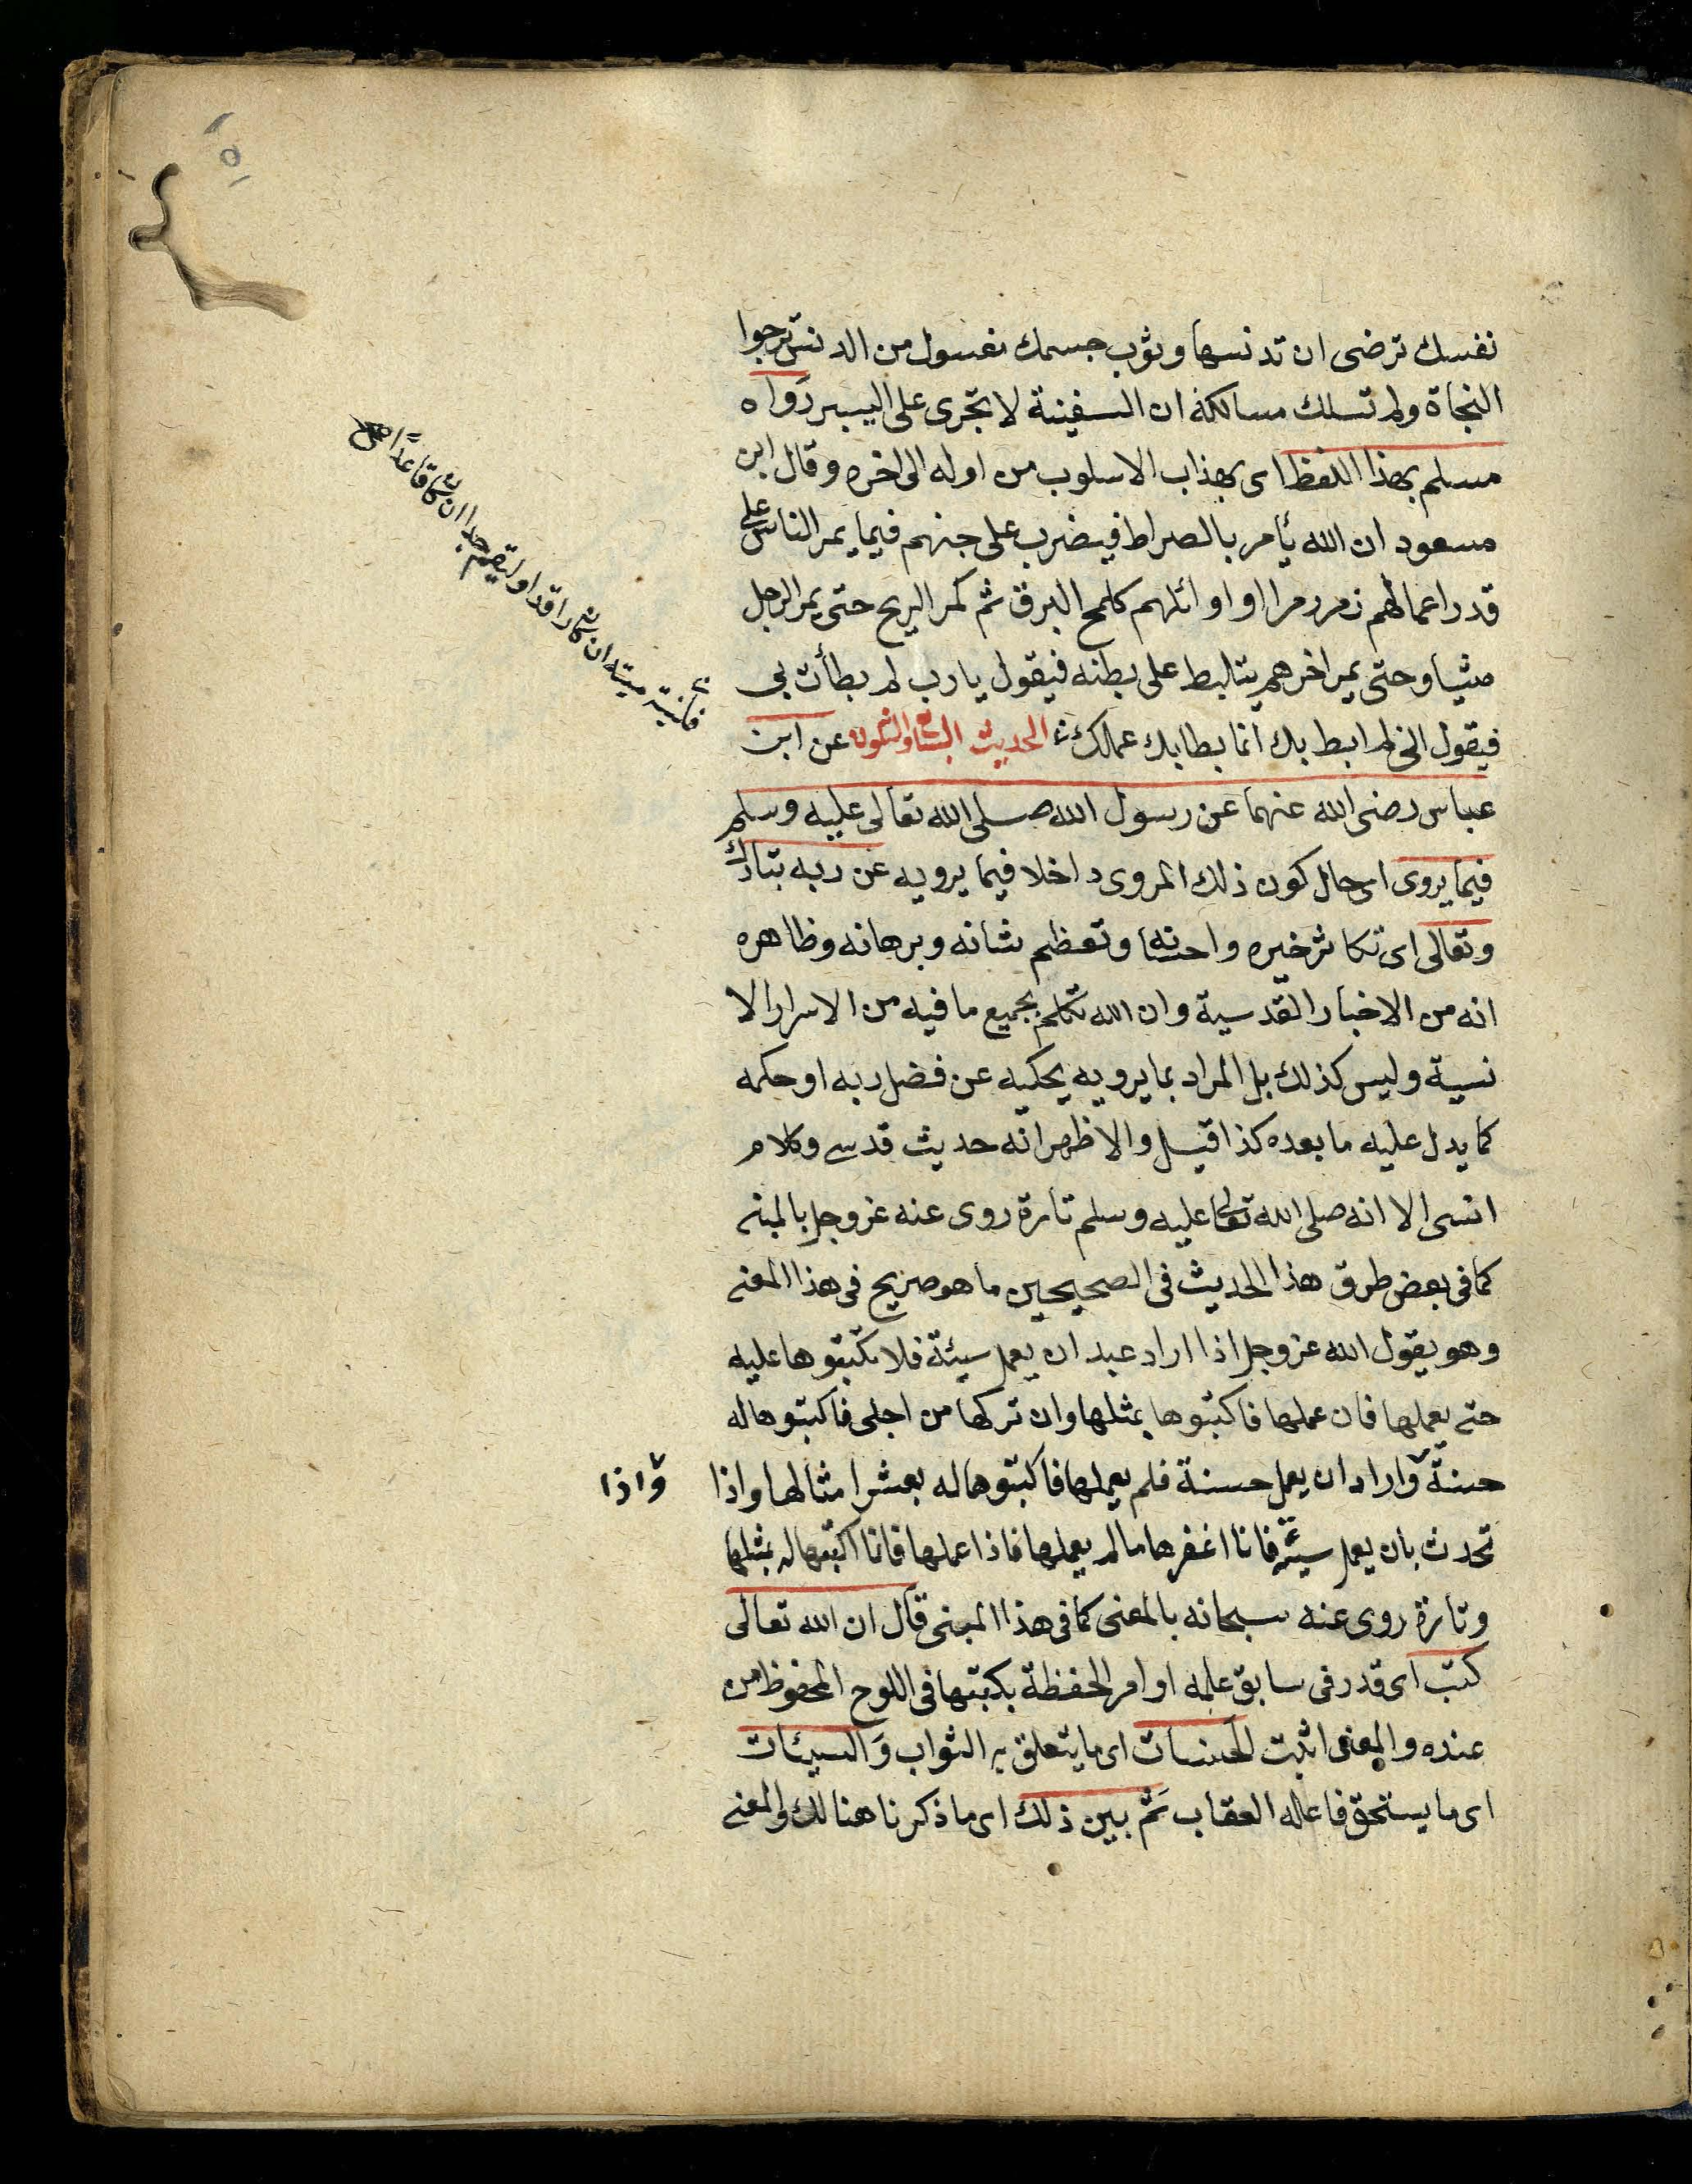 نفسك ترضى ان تدنسها وثوب جسمك مغسول من الدنس ترجوا
النجاة ولم تسلك مسالكة ان السفينة لا تجرى على اليبس رواه
مسلم بهذا اللفظ اى بهذاب الاسلوب من اوله الى اخره وقال ابن
مسعود ان الله يأمر بالصراط فيضرب على جنهم فيما يمر الناس على
قدر اعمالهم زمر ومرا او اوائلهم كلمح البرق ثم كمر الريح حتى يمر الرجل
مشيا وحتى يمر اخرهم يتالبط على بطنه فيقول يا رب لم بطأت بى
فيقول انى لم ابط بك انما بطا بك عمالك الحديث السابع والثلاثون عن ابن
عباس رضى الله عنهما عن رسول الله صلى الله تعالى عليه وسلم
فيما يروى اى حال كون ذلك المروى داخلا فيما يرويه عن ربه تبارك
وتعالى اى تكاثر خيره واحسانه وتعظم شانه وبرهانه وظاهره
انه من الاخبار القدسية وان الله تكلم بجميع ما فيه من الاسرار الا
نسية وليس كذلك بل المراد بما يرويه يحكيه عن فضل ربه او حكمه
كما يدل عليه ما بعده كذا قيل والاظهر انه حديث قدسى وكلام
انسى الا انه صلى الله تعالى عليه وسلم تارة روى عنه عز وجل بالمبنى
كما فى بعض طرق هذا الحديث فى الصحيحين ما هو صريح فى هذا المعنى
وهو يقول الله عز وجل اذا اراد عبد ان يعمل سيئة فلا تكتبوها عليه
حتى يعملها فان عملها فاكتبوها بمثلها وان تركها من اجلى فاكتبوها له
حسنة واراد ان يعمل حسنة فلم يعملها فاكتبوها له بعشر امثالها واذا
واذا
تحدث بان يعمل سيئة فانا اغفرها ما لم يعملها فاذا عملها فانا اكتبها له بمثلها
وتارة روى عنه سبحانه بالمعنى كما فى هذا المبنى قال ان الله تعالى
كتب اى قدر فى سابق علمه او امر الحفظة بكتبها فى اللوح المحفوظ من
عنده والمعنى اثبت الحسنات اى ما يتعلق به الثواب والسيئات
اى ما يستحق فاعله العقاب ثم بين ذلك اى ما ذكرنا هنالك والمعنى